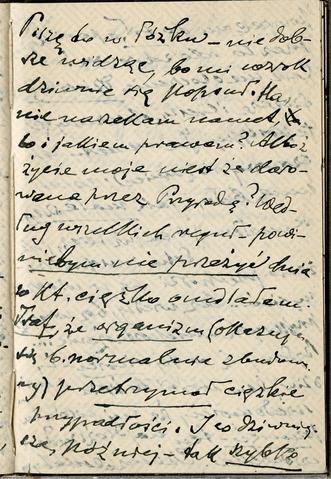 Piszę to w łóżku – nie dob-
rze widzę, bo mi wzrok
dziwnie się popsuł. Ha,
nie narzekam nawet.
bo i jakiem prawem? Alboż
życie moje nie jest że daro-
wane przez Przyrodę? Wed-
ług wszelkich reguł – powi-
nienbym nie przeżyć dnia
w kt. ciężko omdlałem.
Traf, że organizm (okazuje
się b. normalnie zbudowa-
ny) przetrzymał ciężkie
przypadłości. I co dziwniej-
sza, później – tak szybko